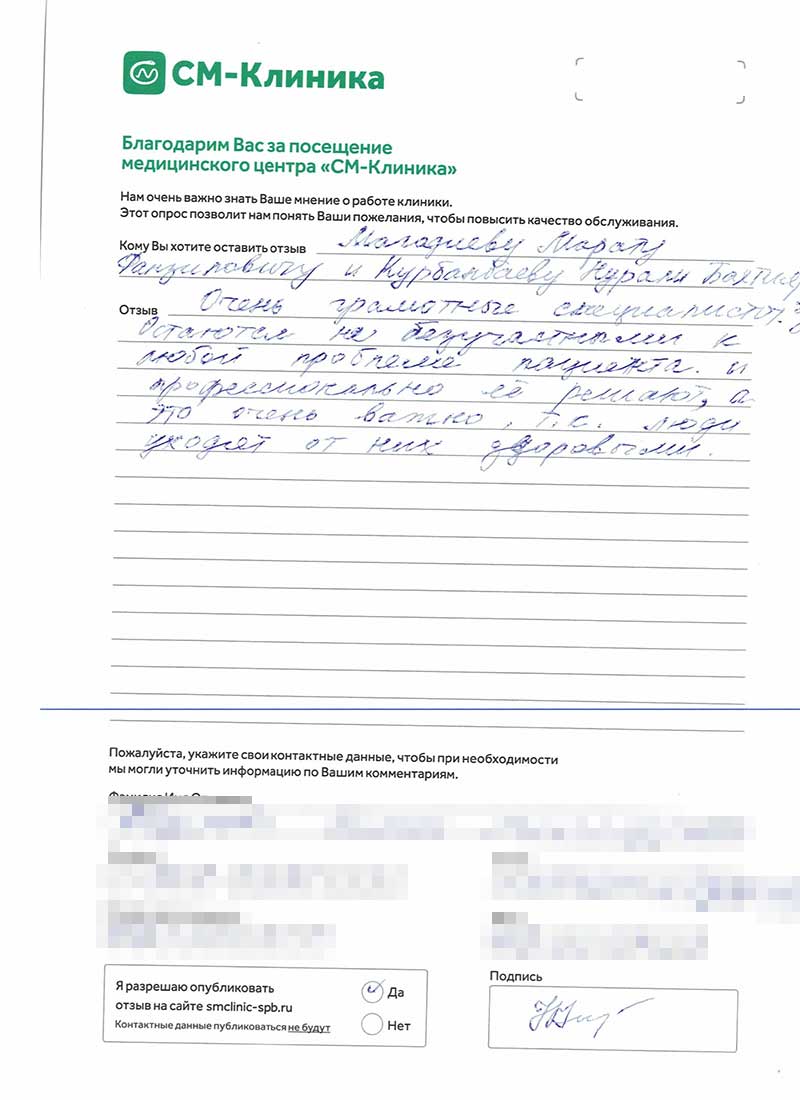 СМ-Клиника
Благодарим Вас за посещение
медицинского центра «СМ-Клиника»
Нам очень важно знать Ваше мнение о работе клиники.
Этот опрос позволит нам понять Ваши пожелания, чтобы повысить качество обслуживания.
Кому Вы хотите оставить отзыв Магадиеву Марату
Фанзиловичу и Курбанбаеву Нурали Бахтияр
Отзыв Очень грамотные специалисты.
Остаются не безучастными к
любой проблеме пациента и
профессионально её решают, а
это очень важно, т.к. люди
уходят от них здоровыми.
Пожалуйста, укажите свои контактные данные, чтобы при необходимости
мы могли уточнить информацию по Вашим комментариям.
Я разрешаю опубликовать
отзыв на сайте smclinic-spb.ru
Контактные данные публиковаться не будут
Да
Нет
Подпись